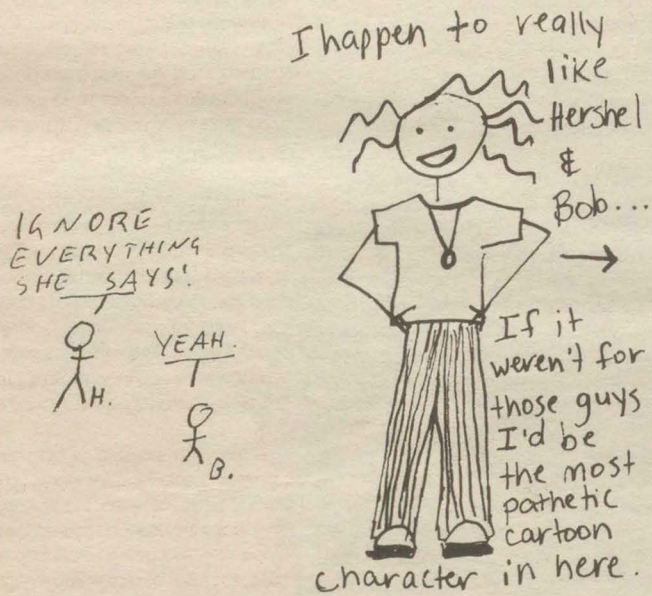 I happen to really
like
Hershel
&
Bob...
IGNORE
EVERYTHING
SHE SAYS!
H.
YEAH.
B.
If it
weren't for
those guys
I'd be
the most
pathetic
cartoon
character in here.